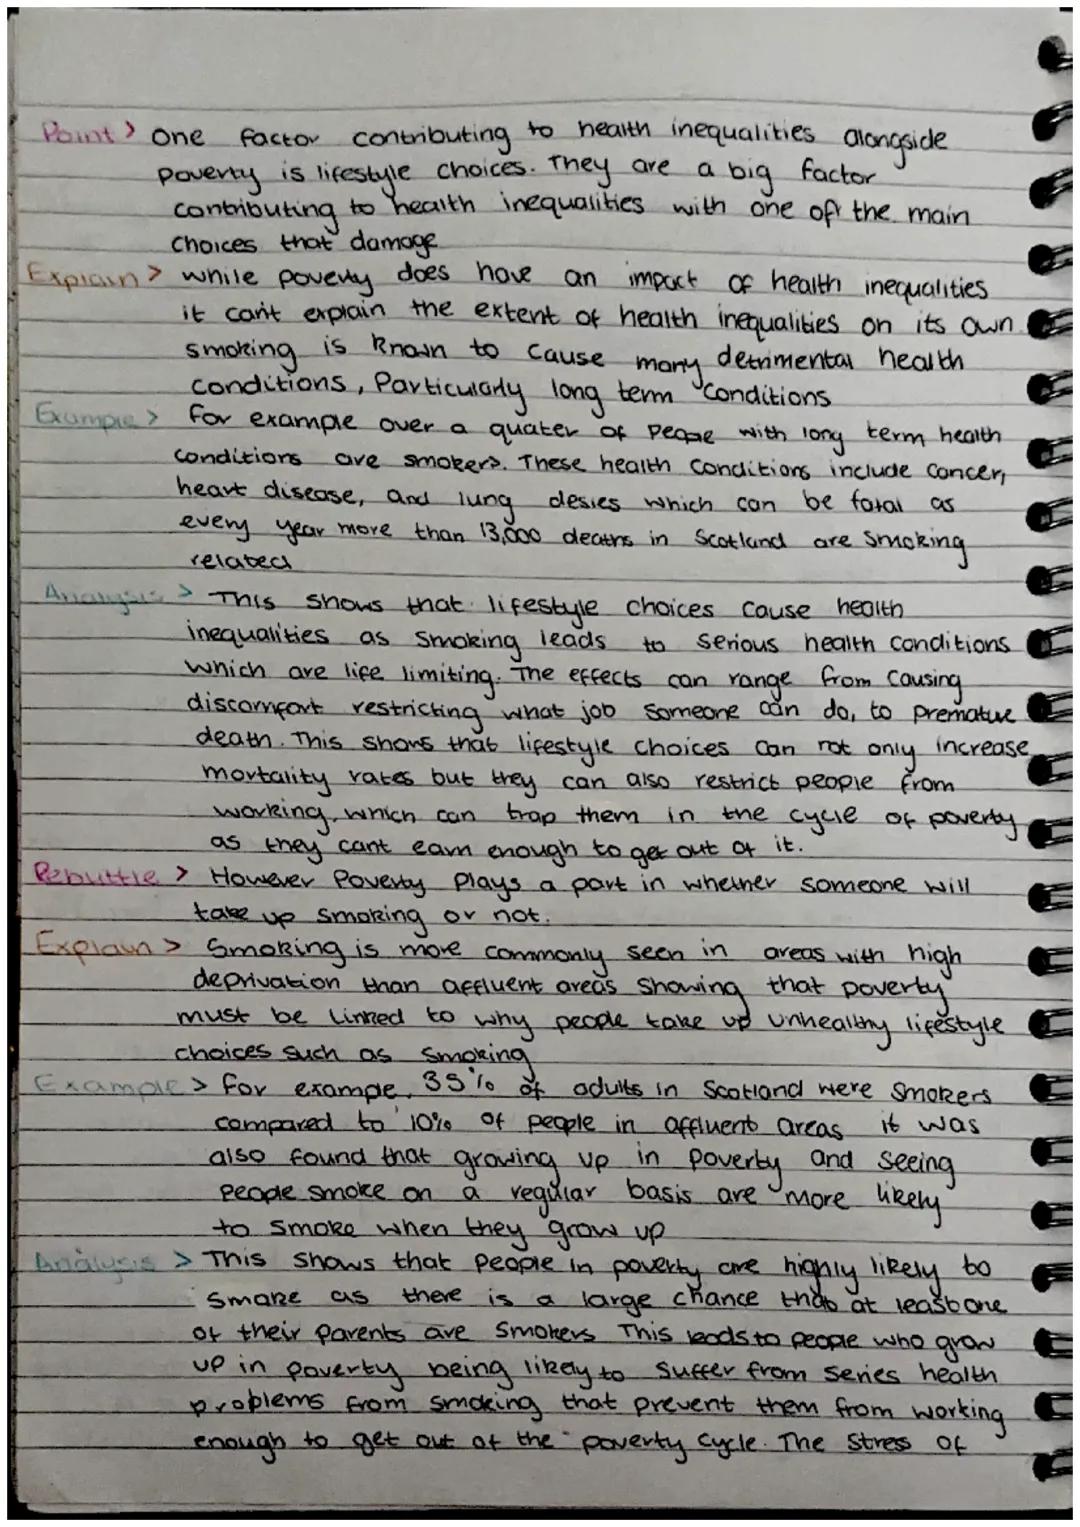 Point > One factor contributing to health inequalities alongside
poverty is lifestyle choices. They are a big factor
contributing to health inequalities with one of the main
choices that damage
Explain > while poverty does have an impact of health inequalities
it can't explain the extent of health inequalities on its own
smoking is known to cause many detrimental health
conditions, Particularly long term conditions
Example > for example over a quater of people with long term health
conditions are smokers. These health conditions include cancer,
heart disease, and lung desies which can be fatal as
every year more than 13,000 deaths in Scotland are smoking
related
Analysis > This shows that lifestyle choices cause health
inequalities as smoking leads to serious health conditions
which are life limiting. The effects can range from causing
discomfort restricting what job someone can do, to premature
death. This shows that lifestyle choices can not only increase
mortality rates but they can also restrict people from
working, which can trap them in the cycle of poverty
as they cant earn enough to get out of it.
Rebuttle > However Poverty plays a part in whether someone will
take up smoking or not.
Explain > Smoking is more commonly seen in areas with high
deprivation than affluent areas showing that poverty
must be linked to why people take up unhealthy lifestyle
choices such as smoking
Example > for example, 35% of adults in Scotland were smokers
compared to 10% of people in affluent areas it was
also found that growing up in poverty and seeing
people smoke on a regular basis are more likely
to smoke when they grow up
Analysis > This shows that people in poverty are highly likely to
smoke as there is a large chance that at least one
of their parents are smokers This leads to people who grow
up in poverty being likely to suffer from series health
problems from smoking that prevent them from working
enough to get out of the poverty cycle. The stress of